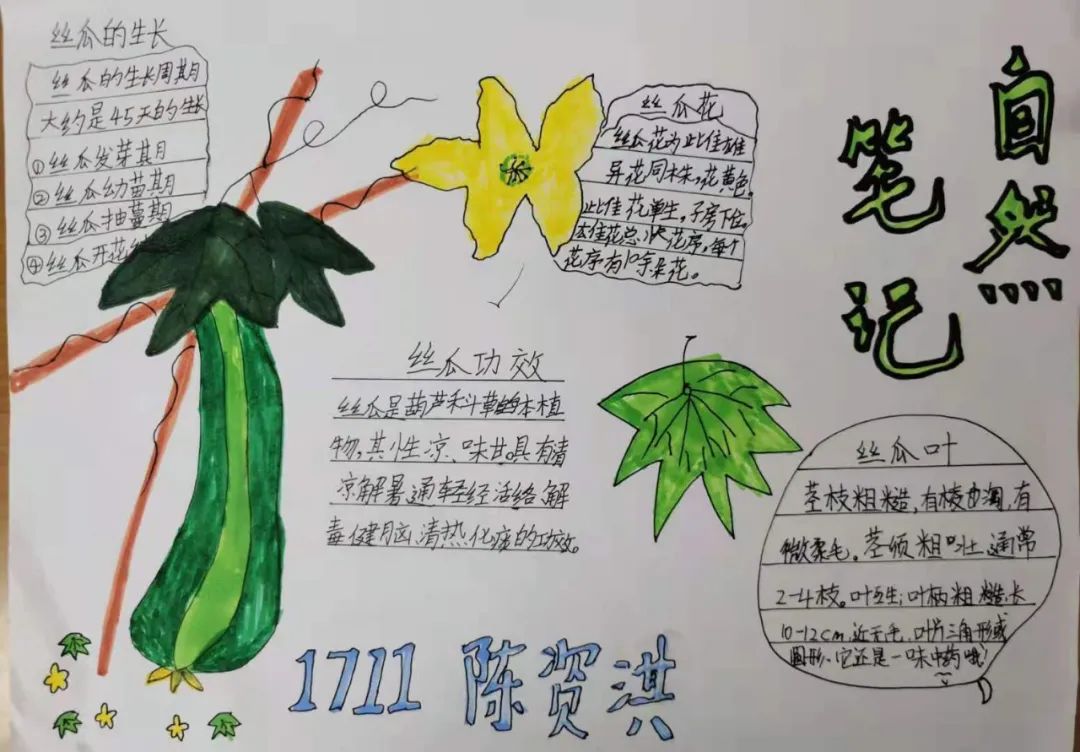 自然
笔记
丝瓜的生长
丝瓜的生长周期
大约是45天的生长
①丝瓜发芽其月
②丝瓜幼苗期
③丝瓜抽蔓期
④丝瓜开花
丝瓜花
丝瓜花为雌雄
异花同株，花黄色。
雌花单生，子房下位。
花总状花序，每个
花序有10余朵花。
丝瓜功效
丝瓜是葫芦科草的本植
物，其性凉、味甘。具有清
凉解暑通轻经活络解
毒健脑清热化痰的功效。
丝瓜叶
茎枝粗糙，有棱沟，有
微柔毛。茎须粗壮通常
2-4枝。叶互生；叶柄粗糙，长
10-12cm，近无毛，叶片三角形或
圆形、它还是一味中药哦！
1711 陈资淇